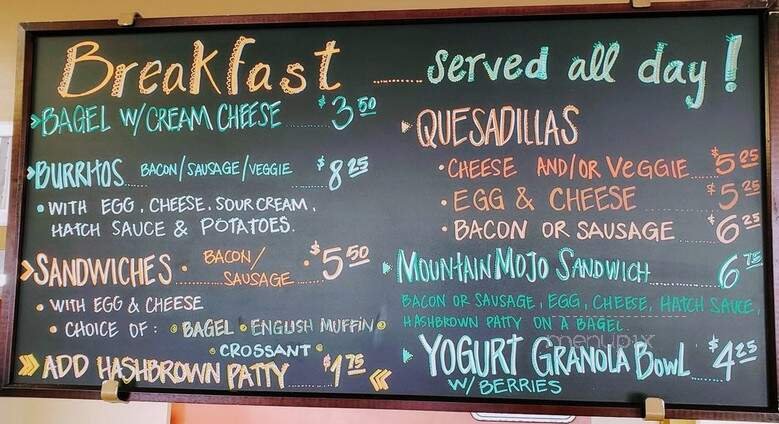 Breakfast ...... served all day!
BAGEL W/CREAM CHEESE ...... $3 50
BURRITOS BACON/SAUSAGE/VEGGIE $8 25
• WITH EGG, CHEESE, SOUR CREAM,
HATCH SAUCE & POTATOES.
SANDWICHES • BACON/
SAUSAGE • $5 50
• WITH EGG & CHEESE
• CHOICE OF: • BAGEL • ENGLISH MUFFIN •
• CROSSANT •
ADD HASHBROWN PATTY ...... $1 75
QUESADILLAS
• CHEESE AND/OR VEGGIE $5 25
• EGG & CHEESE $5 25
• BACON OR SAUSAGE $6 25
MOUNTAIN MOJO SANDWICH 6 75
BACON OR SAUSAGE, EGG, CHEESE, HATCH SAUCE,
HASHBROWN PATTY ON A BAGEL
menupix
YOGURT GRANOLA BOWL $4 25
W/ BERRIES